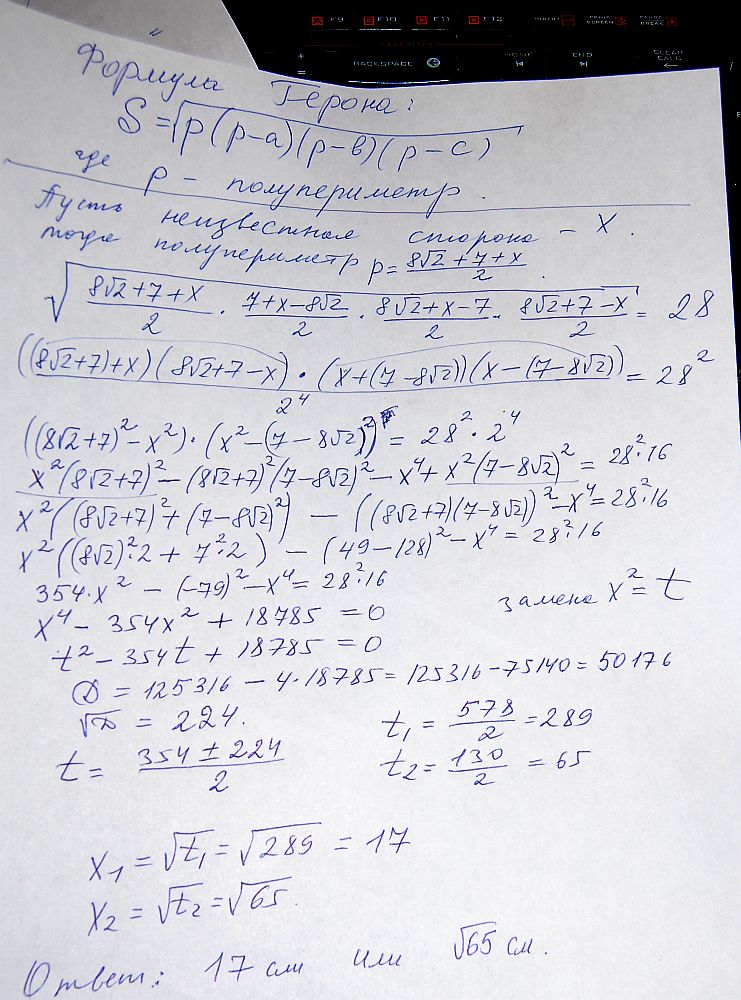 F9 F10 F11 F12 INSERT PRINT SCREEN PAUSE BREAK
BACKSPACE HOME END CLEAR CALC
Формула Герона:
S=√p(p-a)(p-в)(p-c)
где p - полупериметр.
Пусть неизвестная сторона - X.
тогда полупериметр p=(8√2+7+x)/2.
√((8√2+7+x)/2 · (7+x-8√2)/2 · (8√2+x-7)/2 · (8√2+7-x)/2) = 28
((8√2+7)+x)(8√2+7-x)·(x+(7-8√2))(x-(7-8√2))/2⁴ = 28²
((8√2+7)²-x²)·(x²-(7-8√2)²) = 28²·2⁴
x²(8√2+7)²-(8√2+7)²(7-8√2)²-x⁴+x²(7-8√2)² = 28²·16
x²((8√2+7)²+(7-8√2)²) - ((8√2+7)(7-8√2))²-x⁴=28²·16
x²((8√2)²·2+7²·2) - (49-128)²-x⁴ = 28²·16
354·x² - (-79)²-x⁴ = 28²·16
x⁴-354x²+18785 = 0 замена x²=t
t²-354t+18785 = 0
D = 125316-4·18785=125316-75140=50176
√D = 224. t₁=578/2=289
t = (354±224)/2 t₂=130/2=65
x₁=√t₁=√289=17
x₂=√t₂=√65.
Ответ: 17 см или √65 см.